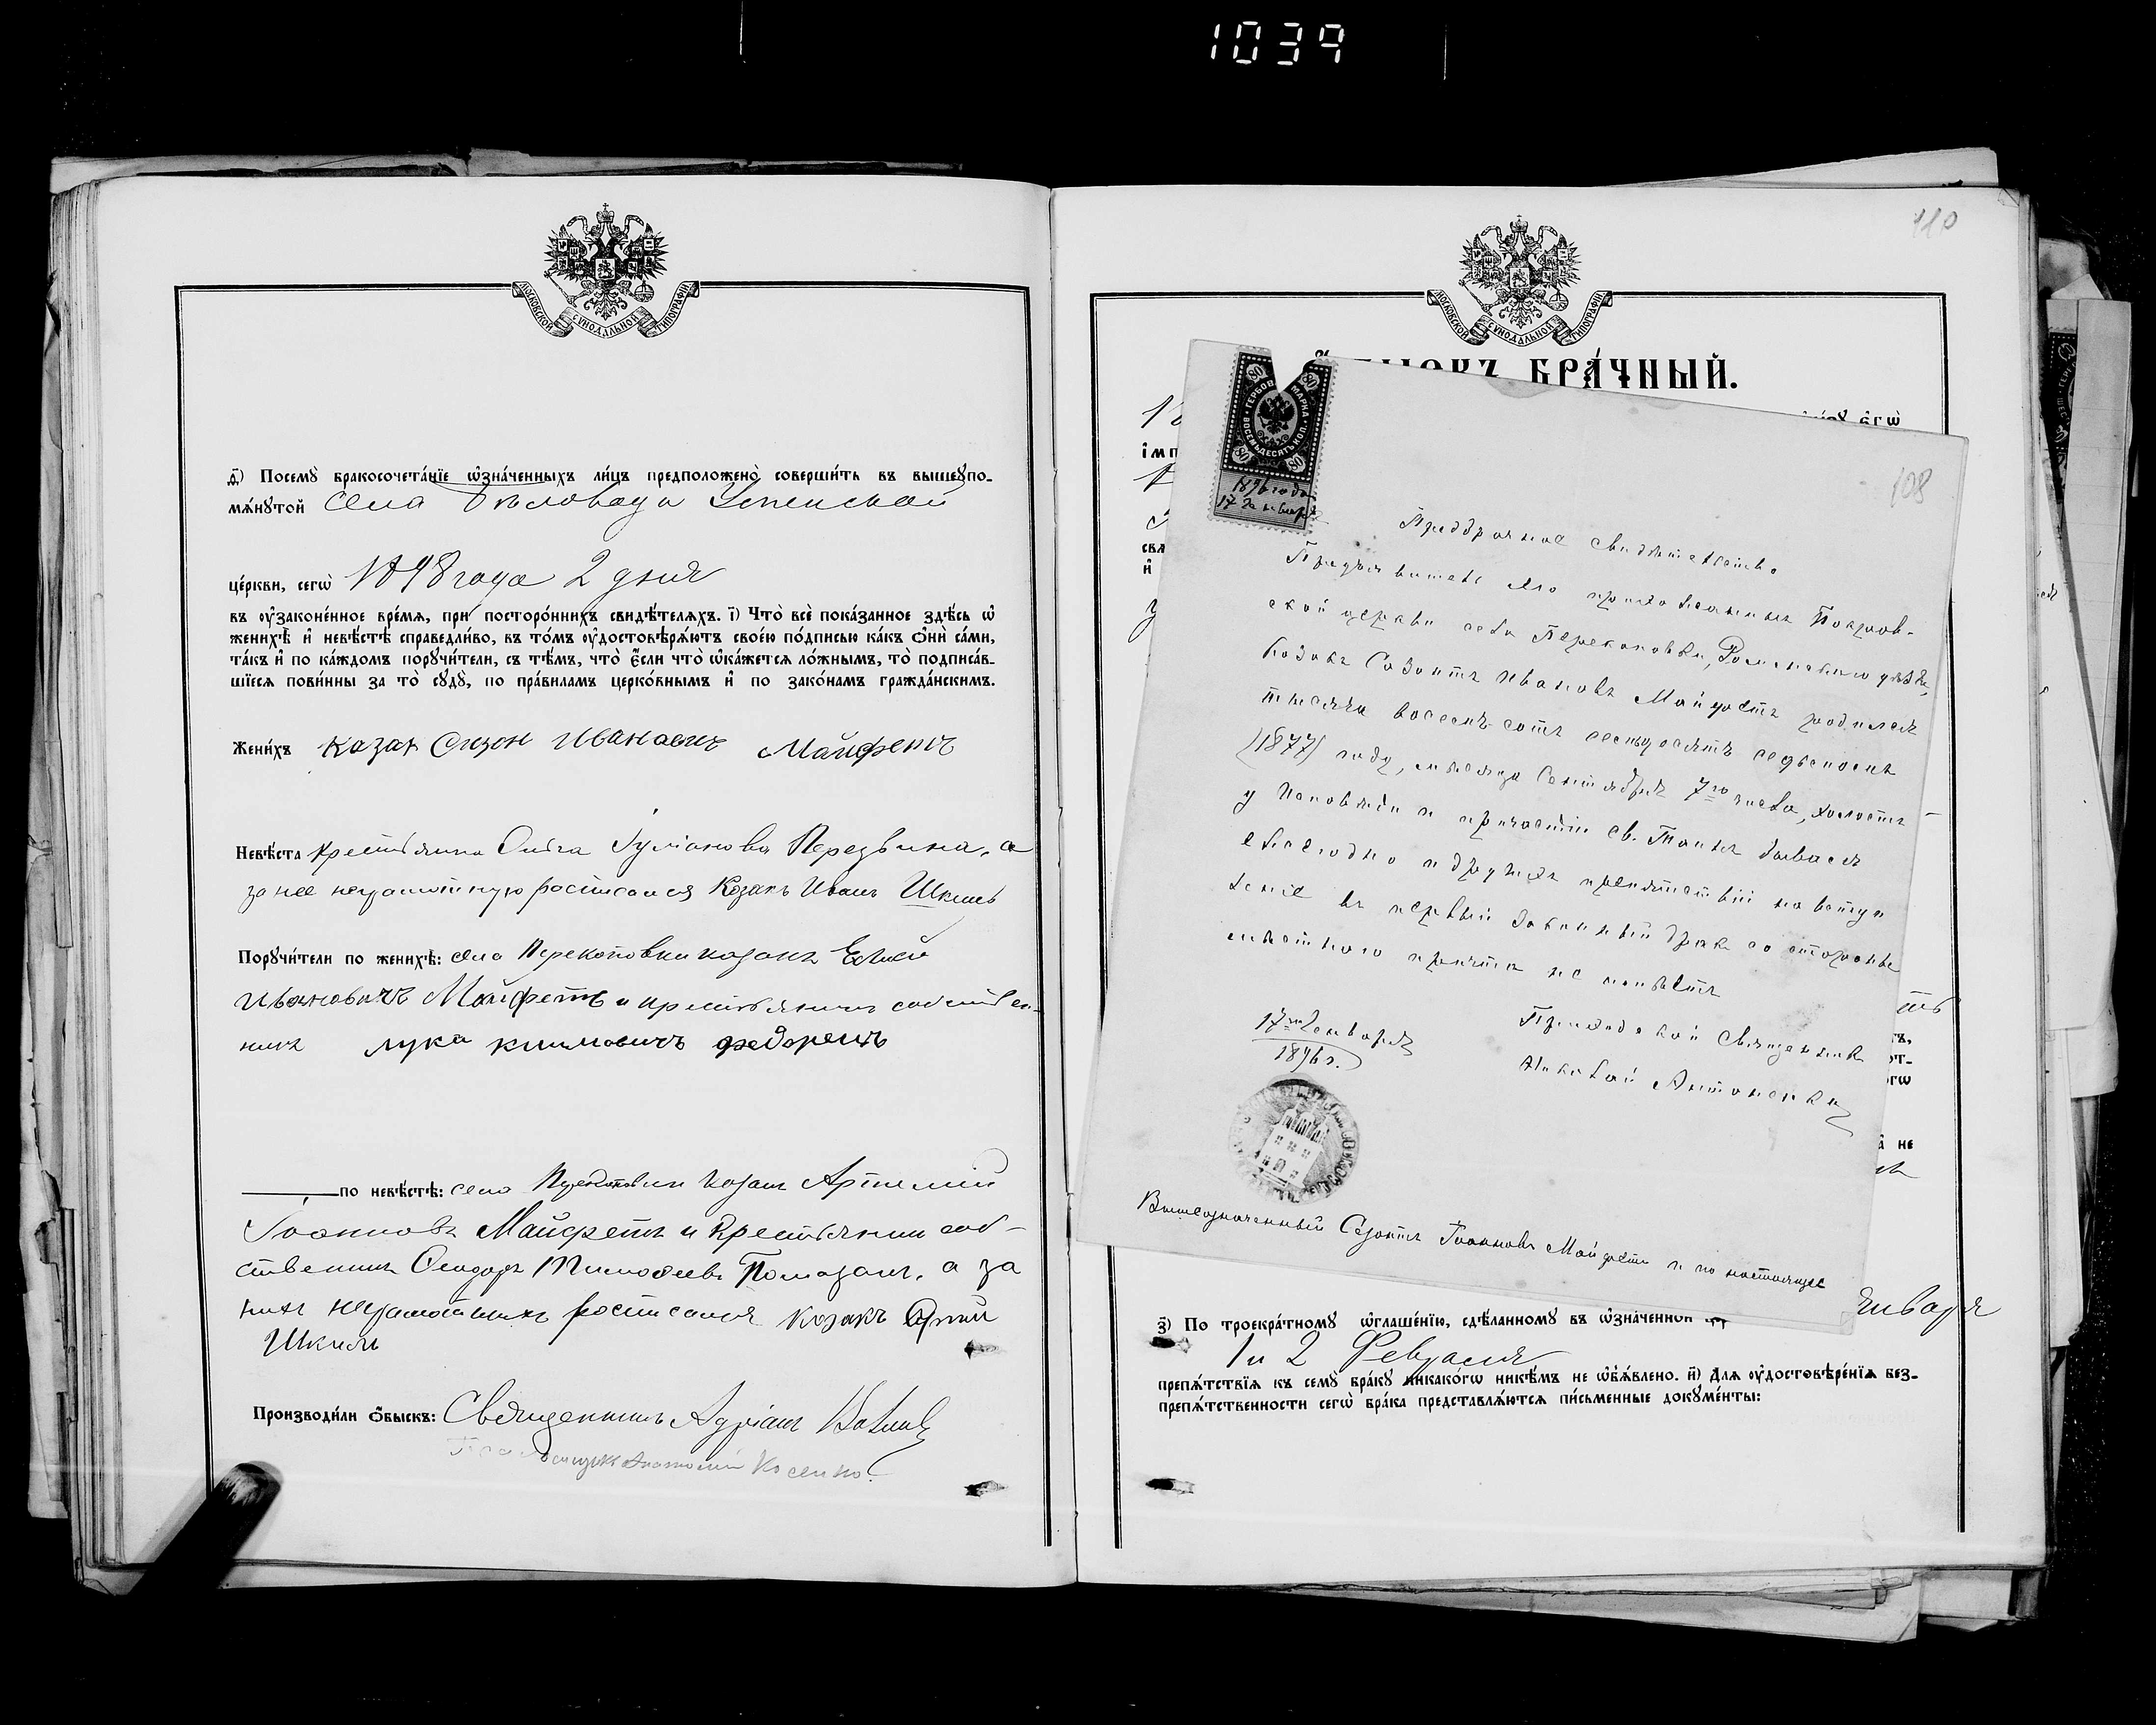 1039
МОСКОВСКОЙ СѴНОДАЛЬНОЙ ТИПОГРАФІИ
д҃) Посемꙋ̀ бракосочета́нїе ѡ҆зна́ченныхъ ли́цъ предположено̀ соверши́ть въ вышеꙋпо-
мѧ́нꙋтой села Бѣловода Успенской
це́ркви, сегѡ̀ 1898 года 2 дня
въ ᲂу҆законе́нное вре́мѧ, при посторо́ннихъ свидѣ́телѧхъ. і҃) Что̀ всѐ пока́занное здѣ́сь ѡ
женихѣ̀ и҆ невѣ́стѣ справедли́во, въ то́мъ ᲂу҆достовѣрѧ́ютъ свое́ю по́дписью ка́къ ѻ҆нѝ са́ми,
та́къ и҆ по ка́ждомъ порꙋчи́тели, съ тѣ́мъ, что̀ є҆́сли что̀ ѡ҆ка́жетсѧ ло́жнымъ, то̀ подписа́в-
шїесѧ пови́нны за то̀ сꙋдꙋ̀, по пра́виламъ церко́внымъ и҆ по зако́намъ гражда́нскимъ.
Жени́хъ казак Сазон Иванович Майфетъ
Невѣ́ста крестьянка Ольга Іуліанова, а
за нее неграмотную росписался Козакъ Иванъ Шкиль
Порꙋчи́тели по женихѣ̀: села Перекоповки козакъ
Ивановичъ Майфетъ и крестьянинъ собствен-
никъ лука климовичъ федоренъ
по невѣ́стѣ: села Перекоповки козакъ Артемій
Іоанновъ Майфетъ и Крестьянин соб-
ственник Ѳеодоръ Тимоѳеевъ Помазанъ, а за
нихъ неграмотныхъ росписался козакъ
Шкиль
Производи́ли ѻ҆́быскъ: Священникъ Адріанъ
Псаломщикъ Анатолій Косенко
110
МОСКОВСКОЙ СѴНОДАЛЬНОЙ ТИПОГРАФІИ
БРА́ЧНЫЙ.
є҆гѡ̀
108
ГЕРБОВ. МАРКА
ВОСЕМЬДЕСЯТЪ КОП.
80 80 80 80
1896 года
17 Января
Предбрачное свидѣтельство
Предъявитель сего прихожанинъ Покров-
ской церкви села Перекоповки, Роменскаго уѣзда,
козакъ Созонтъ Ивановъ Майфетъ родился
тысяча восемьсотъ семьдесятъ седьмомъ
(1877) году, мѣсяца Сентября 7го числа, холостъ
у Исповѣди и причастіи Св. Таинъ бывалъ
ежегодно и другихъ препятствій на вступ
леніе въ первый законный бракъ со стороны
мѣстнаго причта не имѣетъ
17го Января
1896 г.
Приходской Священникъ
Николай Антоненко
Вышеозначенный Созонтъ Іоанновъ Майфетъ и по настоящее
Января
з҃) По троекра́тномꙋ ѡ҆глаше́нїю, сдѣ́ланномꙋ въ ѡ҆зна́ченной
1 и 2 Февраля
препѧ́тствїѧ къ семꙋ̀ бра́кꙋ никако́гѡ никѣ́мъ не ѡ҆б̾ѧ́влено. и҃) Длѧ ᲂу҆достовѣре́нїѧ без-
препѧ́тственности сегѡ̀ бра́ка представлѧ́ютсѧ пи́сьменные докꙋме́нты: